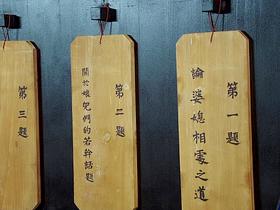 第一題
論婆媳相處之道
第二題
關於娘兒們的若幹話題
第三題